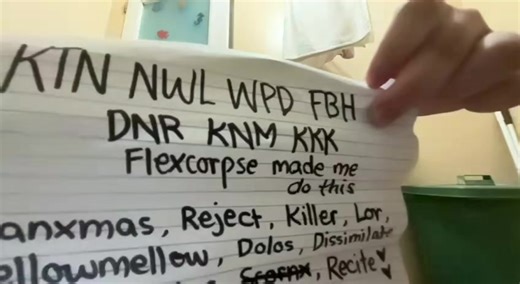 KTN NWL WPD FBH
DNR KNM KKK
Flexcorpse made me
do this
anxmas, Reject, Killer, Lor,
ellowmellow, Dolos, Dissimilate
, Recite